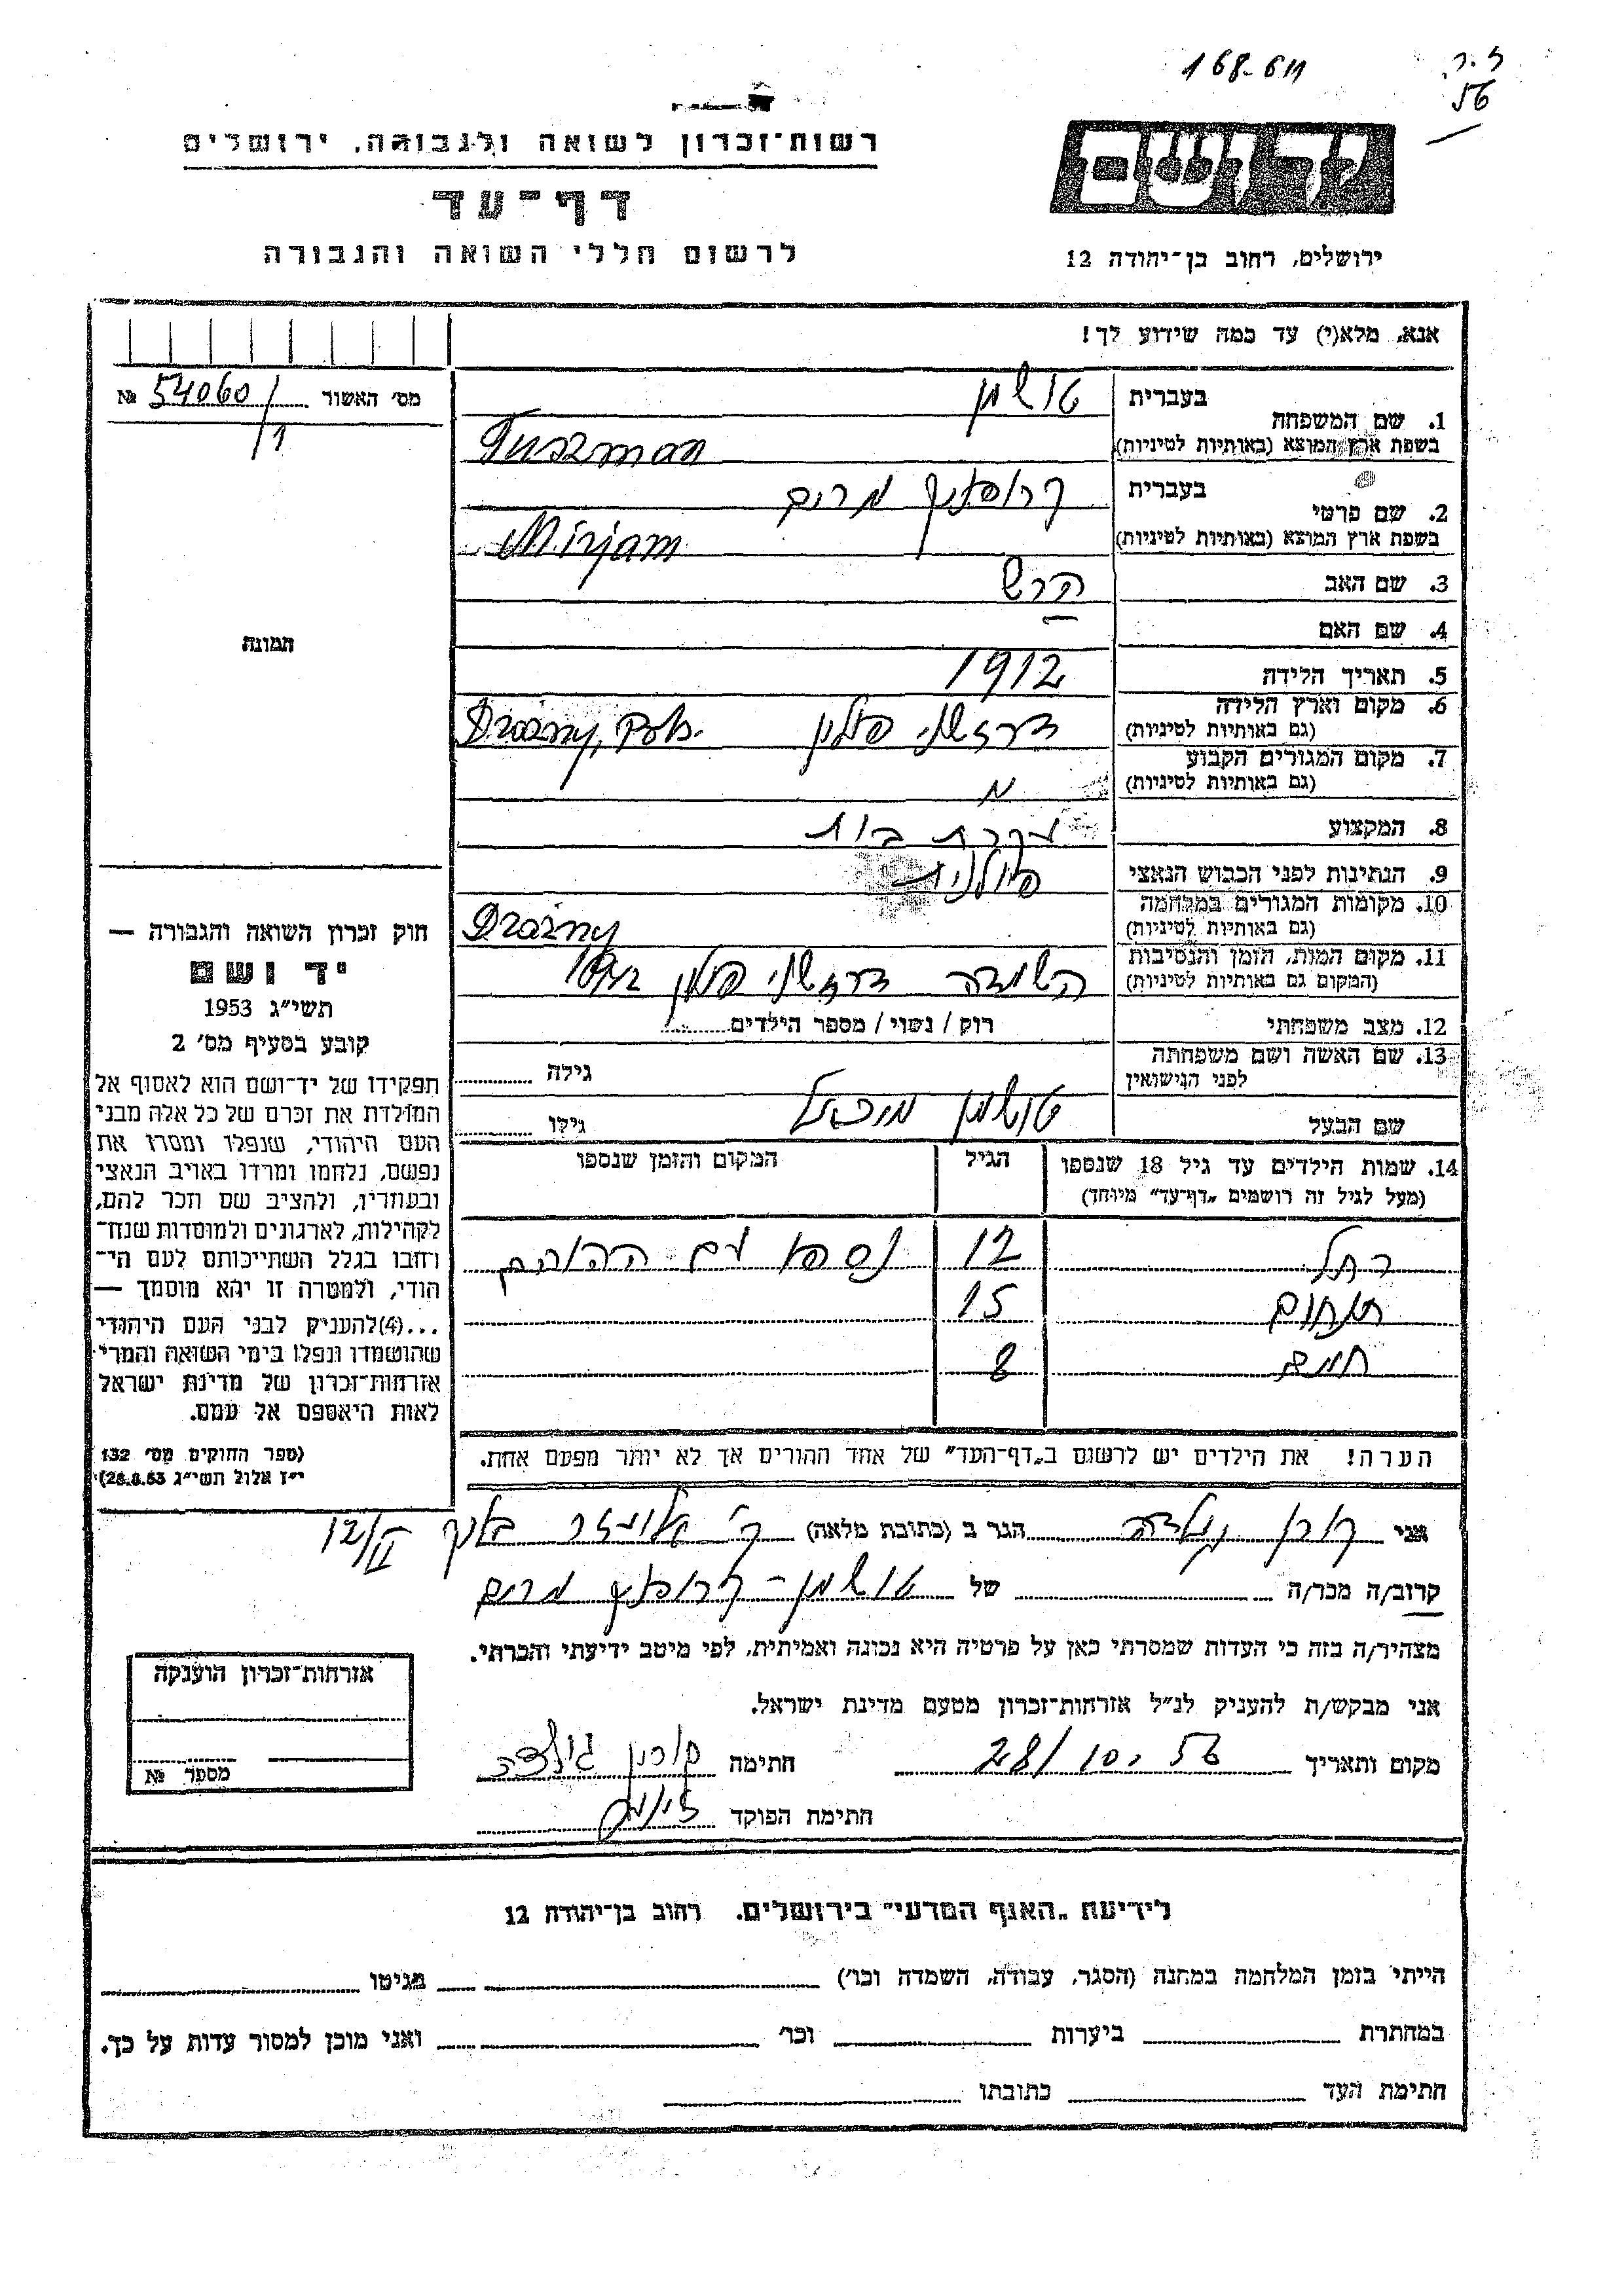 168-611
ז.ר.
56
רשות־זכרון לשואה ולגבורה, ירושלים
דף־עד
לרשום חללי השואה והגבורה
יד ושם
ירושלים, רחוב בן־יהודה 12
אנא, מלא(י) עד כמה שידוע לך!
מס׳ האשור № 54060/1
1. שם המשפחה בעברית טושמן
בשפת ארץ המוצא (באותיות לטיניות) Tuszman
2. שם פרטי בעברית קרופניק מרים
בשפת ארץ המוצא (באותיות לטיניות) Mirjam
3. שם האב הרש
4. שם האם
5. תאריך הלידה 1912
6. מקום וארץ הלידה
(גם באותיות לטיניות) פולין
7. מקום המגורים הקבוע
(גם באותיות לטיניות)
8. המקצוע עקרת בית
9. הנתינות לפני הכבוש הנאצי פולנית
10. מקומות המגורים במלחמה
(גם באותיות לטיניות)
11. מקום המות, הזמן והנסיבות
(המקום גם באותיות לטיניות) פולין 1942
12. מצב משפחתי רוק / נשוי / מספר הילדים
13. שם האשה ושם משפחתה
לפני הנישואין גילה
שם הבעל טושמן מיכאל גילו
14. שמות הילדים עד גיל 18 שנספו הגיל המקום והזמן שנספו
(מעל לגיל זה רושמים „דף־עד״ מיוחד)
רחל 12 נספו עם ההורים
תנחום 15
חיים 8
הערה! את הילדים יש לרשום ב„דף־העד״ של אחד ההורים אך לא יותר מפעם אחת.
תמונה
חוק זכרון השואה והגבורה —
יד ושם
תשי״ג 1953
קובע בסעיף מס׳ 2
תפקידו של יד־ושם הוא לאסוף אל
המולדת את זכרם של כל אלה מבני
העם היהודי, שנפלו ומסרו את
נפשם, נלחמו ומרדו באויב הנאצי
ובעוזריו, ולהציב שם וזכר להם,
לקהילות, לארגונים ולמוסדות שנח־
רחבו בגלל השתייכותם לעם הי־
הודי, ולמטרה זו יהא מוסמך —
...(4) להעניק לבני העם היהודי
שהושמדו ונפלו בימי השואה והמרי
אזרחות־זכרון של מדינת ישראל
לאות היאספם אל עמם.
(ספר החוקים מס׳ 132
י״ז אלול תשי״ג 28.8.53)
אני קורן גולדה הגר ב (כתובת מלאה) ק׳ 12/II
קרוב/ה מכר/ה של טושמן-קרופניק מרים
מצהיר/ה בזה כי העדות שמסרתי כאן על פרטיה היא נכונה ואמיתית, לפי מיטב ידיעתי והכרתי.
אני מבקש/ת להעניק לנ״ל אזרחות־זכרון מטעם מדינת ישראל.
מקום ותאריך 28/10.56 חתימה קורן גולדה
חתימת הפוקד
אזרחות־זכרון הוענקה
מספר №
לידיעת „האגף המדעי״ בירושלים. רחוב בן־יהודה 12
הייתי בזמן המלחמה במחנה (הסגר, עבודה, השמדה וכו׳) בגיטו
במחתרת ביערות וכו׳ ואני מוכן למסור עדות על כך.
חתימת העד כתובתו